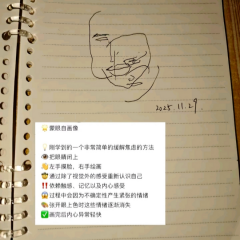 2025.11.29
蒙眼自画像
刚学到的一个非常简单的缓解焦虑的方法
把眼睛闭上
左手摸脸,右手绘画
通过除了视觉外的感受重新认识自己
依赖触感、记忆以及内心感受
过程中会因为不确定性产生紧张的情绪
张开眼上色时这些情绪逐渐消失
画完后内心异常轻快